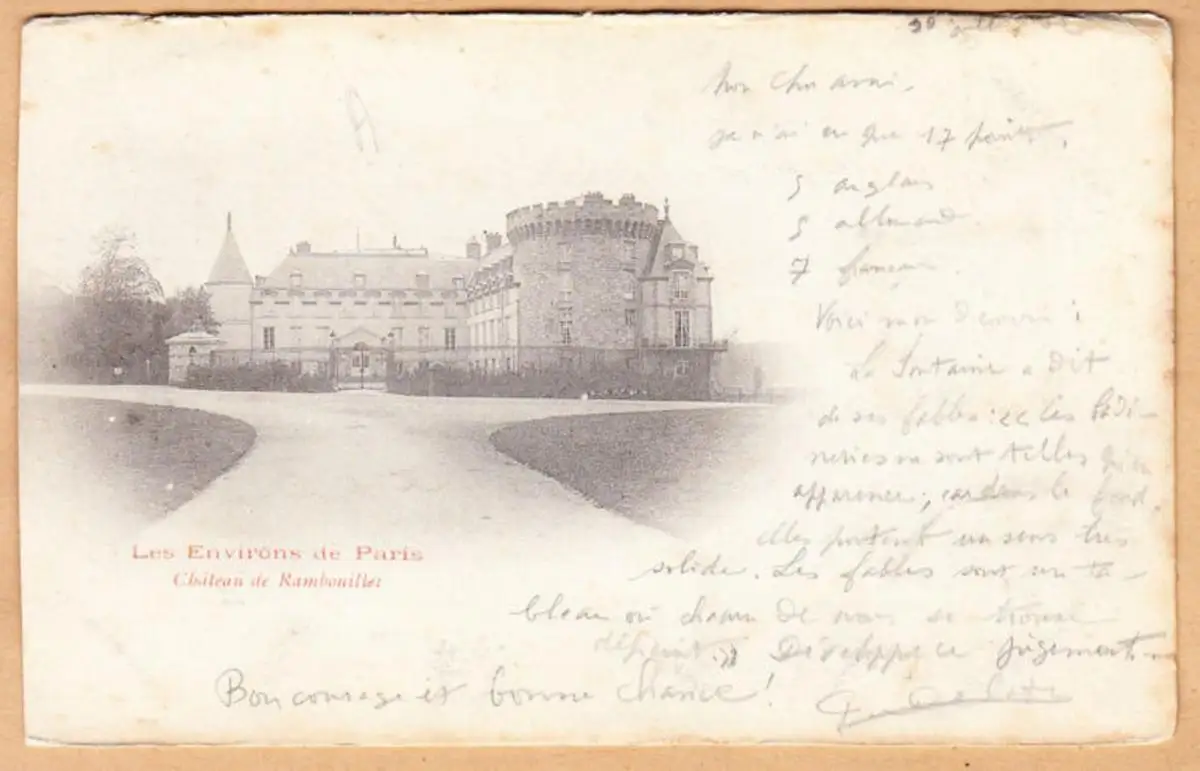 Mon cher ami,
je n'ai eu que 17 points,
5 anglais
5 allemand
7 français.
Voici mon devoir :
La Fontaine a dit
de ses fables : « Les badi-
neries ne sont telles qu'en
apparence ; car dans le fond
elles portent un sens très
solide. Les fables sont un ta-
bleau où chacun de nous se trouve
dépeint. » Développer ce jugement.
Bon courage et bonne chance !
Les Environs de Paris
Château de Rambouillet